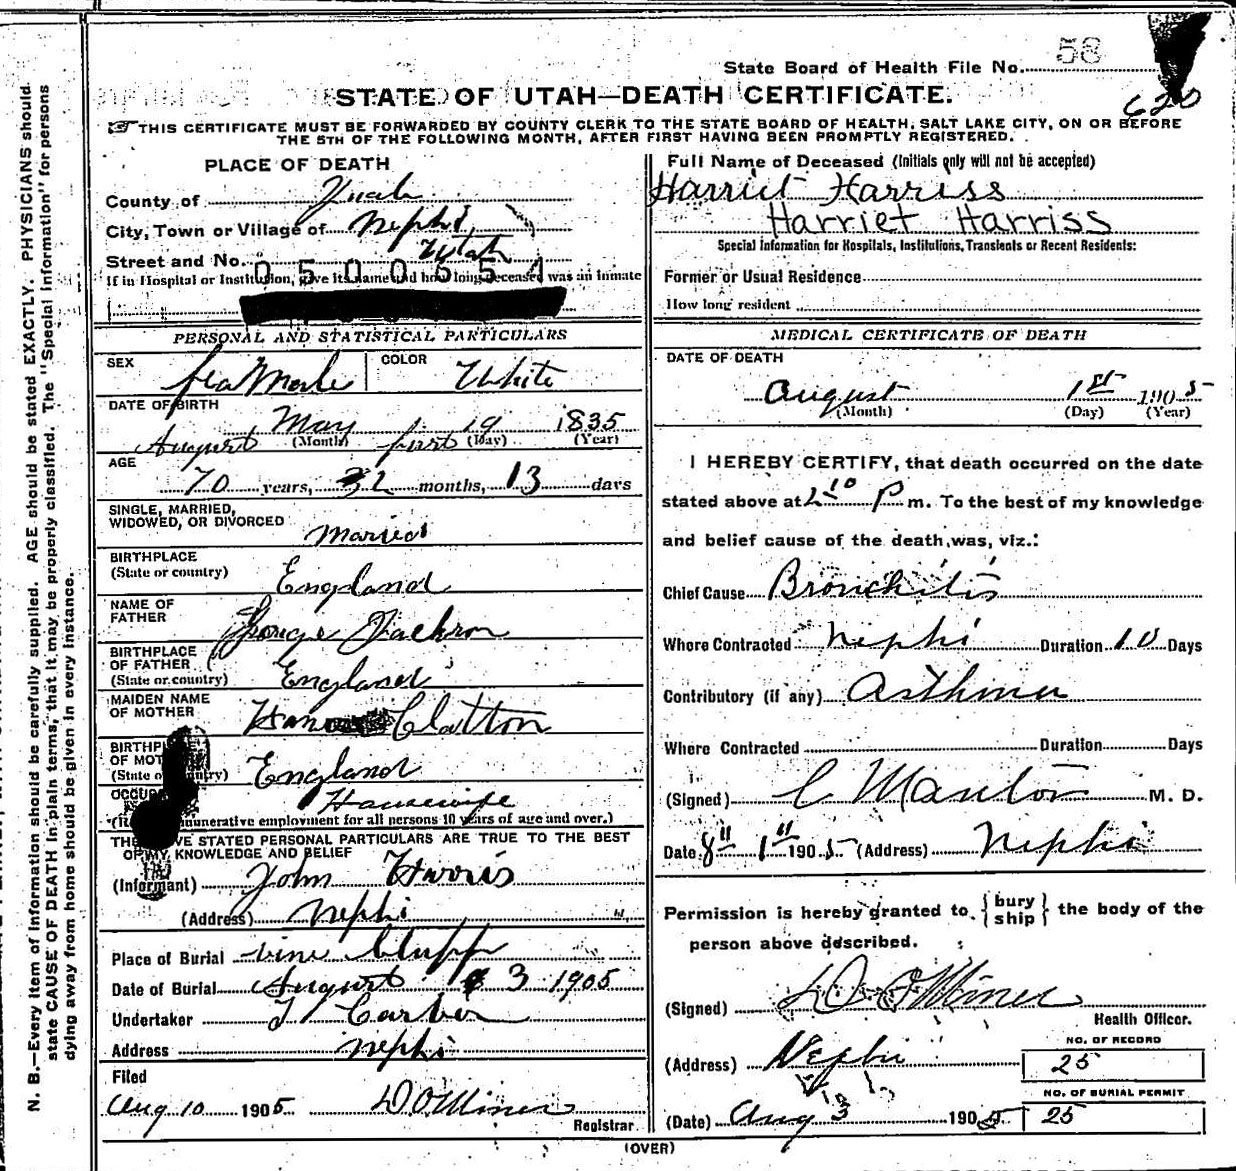 State Board of Health File No. 58
620
STATE OF UTAH—DEATH CERTIFICATE.
☞THIS CERTIFICATE MUST BE FORWARDED BY COUNTY CLERK TO THE STATE BOARD OF HEALTH, SALT LAKE CITY, ON OR BEFORE
THE 5TH OF THE FOLLOWING MONTH, AFTER FIRST HAVING BEEN PROMPTLY REGISTERED.
PLACE OF DEATH
County of Juab
City, Town or Village of Nephi,
Street and No. Utah
0500654
If in Hospital or Institution, give its name and how long deceased was an inmate
PERSONAL AND STATISTICAL PARTICULARS
SEX feaMale COLOR White
DATE OF BIRTH
May 19 1835
August (Month) first (Day) (Year)
AGE
70 years, 2 months, 13 days
SINGLE, MARRIED,
WIDOWED, OR DIVORCED Married
BIRTHPLACE
(State or country) England
NAME OF
FATHER George Jackson
BIRTHPLACE
OF FATHER
(State or country) England
MAIDEN NAME
OF MOTHER Clatton
BIRTHPL
OF MOT
(State o ntry) England
OCCUP Housewife
munerative employment for all persons 10 years of age and over.)
THE VE STATED PERSONAL PARTICULARS ARE TRUE TO THE BEST
OF MY KNOWLEDGE AND BELIEF
(Informant) John Harris
(Address) Nephi
Place of Burial vine Bluff
Date of Burial August 3 1905
Undertaker Carber
Address Nephi
Filed
Aug 10 1905 D O Miner
Registrar
Full Name of Deceased (Initials only will not be accepted)
Harriet Harriss
Harriet Harriss
Special Information for Hospitals, Institutions, Transients or Recent Residents:
Former or Usual Residence
How long resident
MEDICAL CERTIFICATE OF DEATH
DATE OF DEATH
August 1st 1905
(Month) (Day) (Year)
I HEREBY CERTIFY, that death occurred on the date
stated above at 2 10 P m. To the best of my knowledge
and belief cause of the death was, viz.:
Chief Cause Bronchitis
Where Contracted Nephi Duration 10 Days
Contributory (if any) Asthma
Where Contracted Duration Days
(Signed) M. D.
Date 8" 1" 1905 (Address) Nephi
Permission is hereby granted to { bury ship } the body of the
person above described.
(Signed) D O Miner
Health Officer.
(Address) Nephi
NO. OF RECORD
25
NO. OF BURIAL PERMIT
(Date) Aug 3 1905 25
(OVER)
N. B.—Every item of information should be carefully supplied. AGE should be stated EXACTLY. PHYSICIANS should
state CAUSE OF DEATH in plain terms, that it may be properly classified. The "Special Information" for persons
dying away from home should be given in every instance.